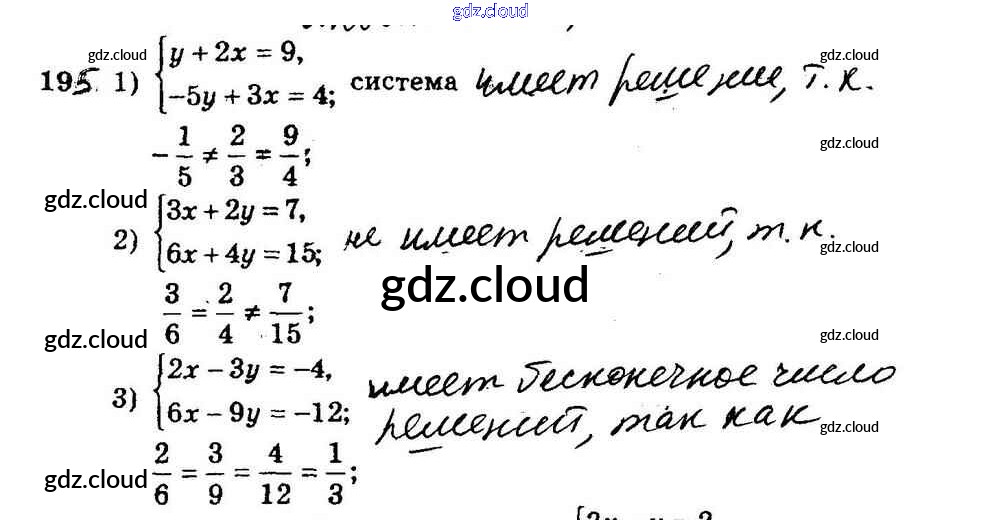 gdz.cloud
195. 1) { y + 2x = 9, -5y + 3x = 4; система имеет решение, т. к.
gdz.cloud
gdz.cloud
- 1/5 ≠ 2/3 = 9/4;
gdz.cloud
2) { 3x + 2y = 7, 6x + 4y = 15; не имеет решений, т. к.
gdz.cloud
gdz.cloud
3/6 = 2/4 ≠ 7/15;
gdz.cloud
gdz.cloud
3) { 2x - 3y = -4, 6x - 9y = -12; имеет бесконечное число
решений, так как
gdz.cloud
2/6 = 3/9 = 4/12 = 1/3;
gdz.cloud